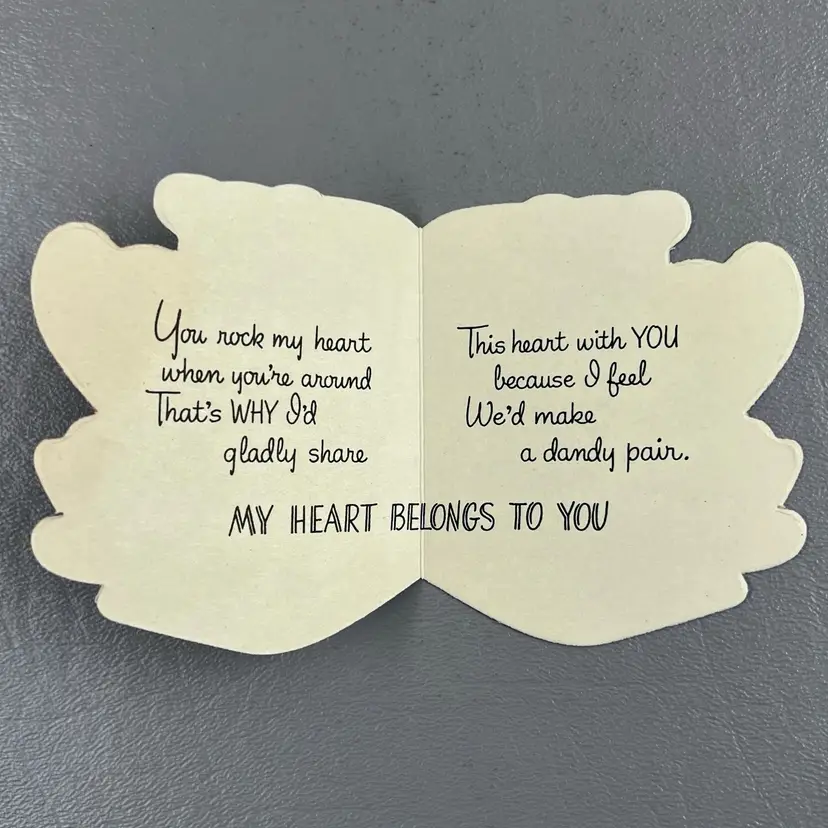 You rock my heart
when you're around
That's WHY I'd
gladly share
This heart with YOU
because I feel
We'd make
a dandy pair.
MY HEART BELONGS TO YOU